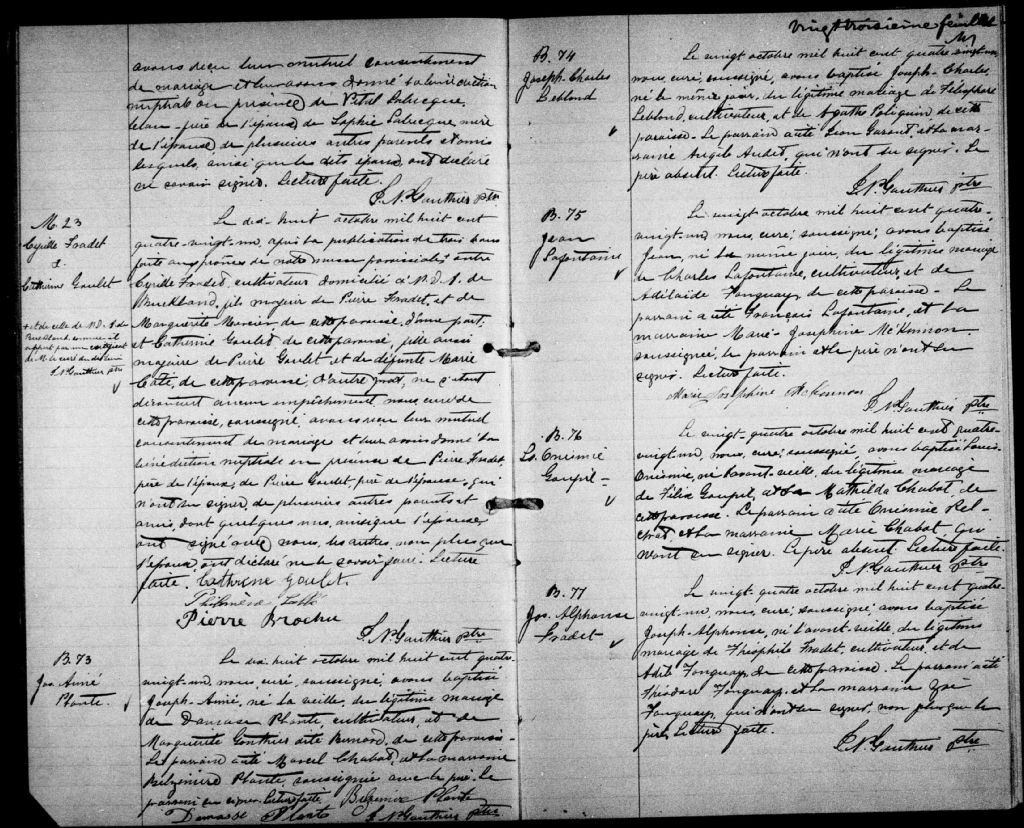 avons reçu leur mutuel consentement
de mariage et leur avons donné la bénédiction
nuptiale en présence de Vital Labrecque,
beau-père de l'épouse, de Sophie Labrecque, mère
de l'épouse, de plusieurs autres parents et amis
lesquels ainsi que les dits époux ont déclaré
ne savoir signer. Lecture faite.
J. N. Gauthier ptre
M. 23
Cyrille Fradet
&
Catherine Goulet
+ et de celle de N.D. A. de
Buckland, comme il
appert par un certificat
de M. le curé du dit lieu
J. N. Gauthier ptre
Le dix-huit octobre mil huit cent
quatre-vingt-un, après la publication de trois bans
faite aux prônes de notre messe paroissiale + entre
Cyrille Fradet, cultivateur domicilié à N.D. A. de
Buckland, fils majeur de Pierre Fradet, et de
Marguerite Mercier, de cette paroisse, d'une part,
et Catherine Goulet de cette paroisse, fille aussi
majeure de Pierre Goulet et de défunte Marie
Côté, de cette paroisse, d'autre part, ne s'étant
découvert aucun empêchement nous, curé de
cette paroisse, soussigné, avons reçu leur mutuel
consentement de mariage et leur avons donné la
bénédiction nuptiale en présence de Pierre Fradet,
père de l'époux, de Pierre Goulet, père de l'épouse, qui
n'ont su signer, de plusieurs autres parents et
amis, dont quelques uns, ainsi que l'épouse,
ont signé avec nous, les autres, non plus que
l'époux, ont déclaré ne le savoir faire. Lecture
faite. Catherine Goulet.
Philomène
Pierre Brochu
J. N. Gauthier ptre
B. 73
Jos. Aimé
Plante.
Le dix-huit octobre mil huit cent quatre-
vingt-un, nous, curé, soussigné, avons baptisé
Joseph-Aimé, né la veille, du légitime mariage
de Damase Plante, cultivateur, et de
Marguerite Gonthier dite Bernard, de cette paroisse.
Le parrain a été Marcel Chabot, et la marraine
Belzémire Plante, soussignée avec le père. Le
parrain n'a su signer. Lecture faite. Belzémire Plante
Damase Plante J. N. Gauthier ptre
Vingt troisième feuillet
B. 74
Joseph-Charles
Leblond
Le vingt octobre mil huit cent quatre-vingt-un,
nous, curé, soussigné, avons baptisé Joseph-Charles,
né le même jour, du légitime mariage de Télesphore
Leblond, cultivateur, et de Agathe Poliquin de cette
paroisse. Le parrain a été Léon Garant et la mar-
raine Angèle Audet, qui n'ont su signer. Le
père absent. Lecture faite.
J. N. Gauthier ptre
B. 75
Jean
Lafontaine
Le vingt octobre mil huit cent quatre-
vingt-un nous, curé, soussigné, avons baptisé
Jean, né le même jour, du légitime mariage
de Charles Lafontaine, cultivateur, et de
Adélaïde Tanguay, de cette paroisse. Le
parrain a été François Lafontaine, et la
marraine Marie-Joséphine McKinnon.
soussignée, le parrain et le père n'ont su
signer. Lecture faite.
Marie Josephine McKinnon
J. N. Gauthier ptre
B. 76
Ls. Onésime
Goupil
Le vingt-quatre octobre mil huit cent quatre-
vingt-un, nous, curé, soussigné, avons baptisé Louis-
Onésime, né l'avant-veille, du légitime mariage
de Félix Goupil, et de Mathilda Chabot, de
cette paroisse. Le parrain a été Onésime
et la marraine Marie Chabot qui
n'ont su signer. Le père absent. Lecture faite.
J. N. Gauthier ptre
B. 77
Jos. Alphonse
Fradet
Le vingt-quatre octobre mil huit cent quatre-
vingt-un, nous, curé, soussigné, avons baptisé
Joseph-Alphonse, né l'avant-veille, du légitime
mariage de Théophile Fradet, cultivateur, et de
Adèle Tanguay, de cette paroisse. Le parrain a été
Théodore Tanguay, et la marraine Zoé
Tanguay, qui n'ont su signer, non plus que le
père. Lecture faite.
J. N. Gauthier ptre